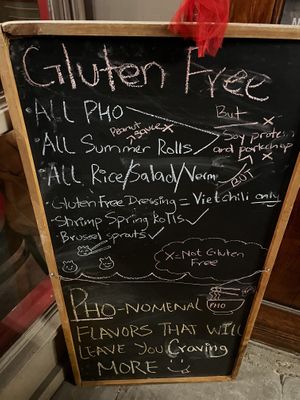 Gluten Free
• ALL PHO
But
Peanut sauce X
Soy protein X
• ALL Summer Rolls
and porkchop X
• ALL Rice/Salad/Verm
BUT
• Gluten Free Dressing = Viet chili only
- Shrimp Spring Rolls ✓
- Brussel sprouts ✓
X = Not Gluten
Free
PHO-NOMENAL
PHO
FLAVORS THAT WILL
LEAVE YOU Craving
MORE